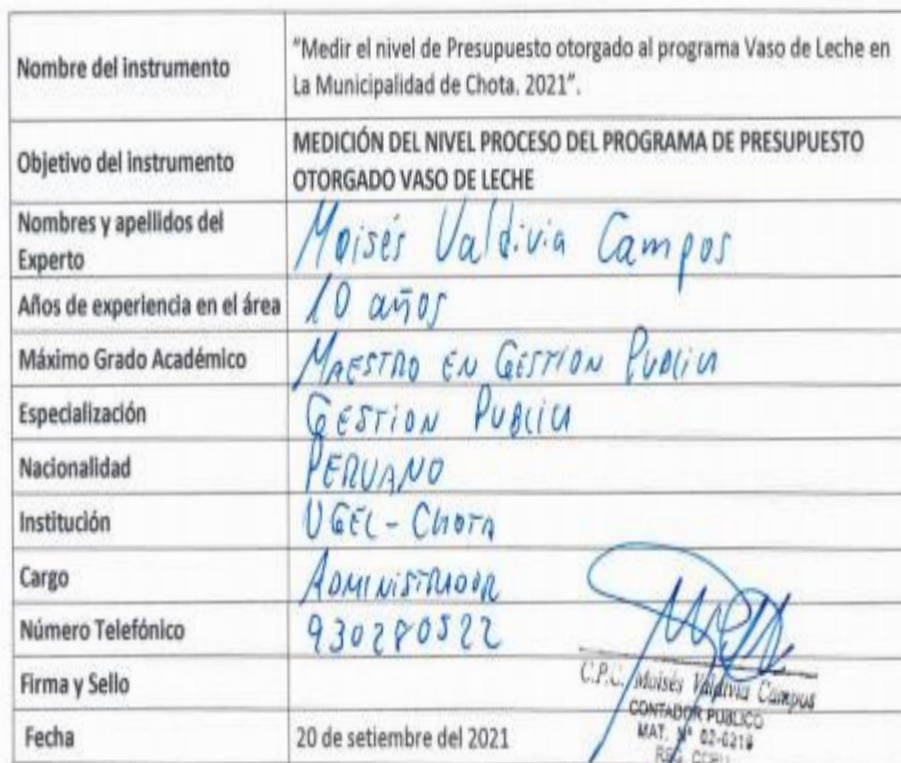 Nombre del instrumento
"Medir el nivel de Presupuesto otorgado al programa Vaso de Leche en
La Municipalidad de Chota. 2021".
Objetivo del instrumento
MEDICIÓN DEL NIVEL PROCESO DEL PROGRAMA DE PRESUPUESTO
OTORGADO VASO DE LECHE
Nombres y apellidos del
Experto
Moisés Valdivia Campos
Años de experiencia en el área
10 años
Máximo Grado Académico
MAESTRO EN GESTION PUBLICA
Especialización
GESTION PUBLICA
Nacionalidad
PERUANO
Institución
UGEL - CHOTA
Cargo
ADMINISTRADOR
Número Telefónico
930280522
Firma y Sello
C.P.C. Moisés Valdivia Campos
CONTADOR PUBLICO
MAT. N° 02-6219
Fecha
20 de setiembre del 2021